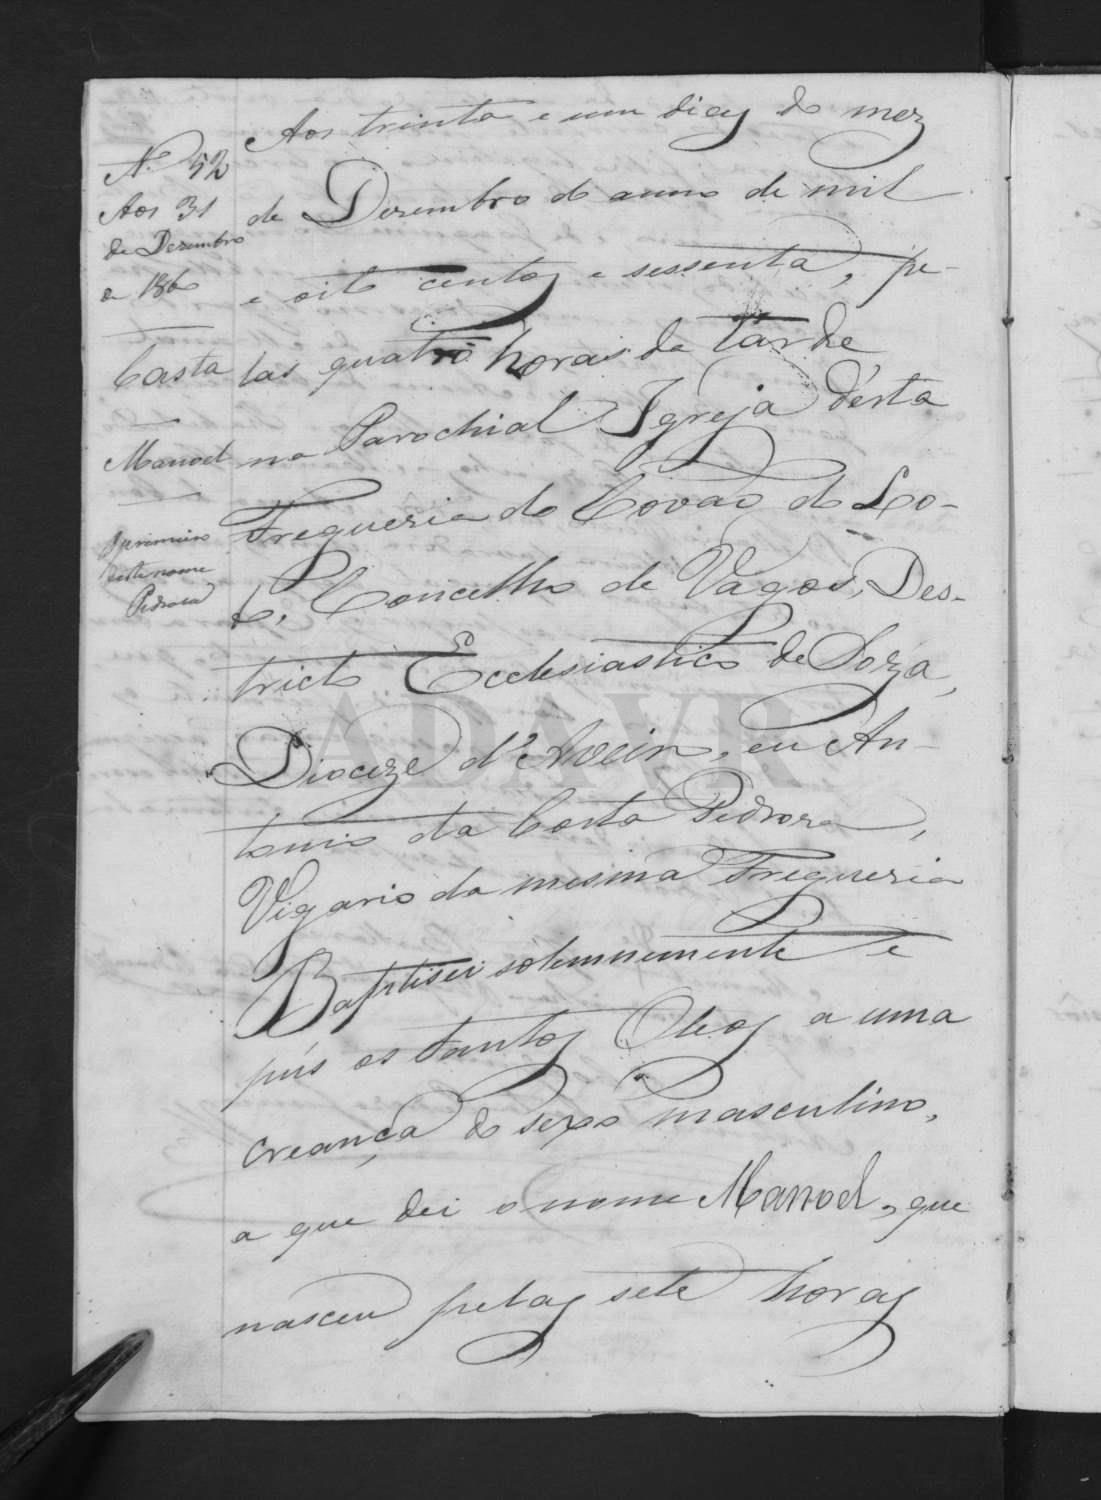 Nº 52
Aos 31
de Dezembro
de 1860
Casta
Manoel
Pedroza
Aos trinta e um dias do mez
de Dezembro do anno de mil
e oito centos e sessenta, pe-
las quatro horas da tarde
na Parochial Igreja d'ésta
Freguezia do Covão do Lo-
b, Concelho de Vagos, Des-
tricto Ecclesiastico de Soza,
Dioceze d'Aveiro, eu An-
tonio da Costa Pedroza,
Vigario da mesma Freguezia
Baptisei solemnemente e
pús os Santos Oleos a uma
creança do sexo masculino,
a que dei o nome Manoel, que
nasceu pelas sete horas
ADAVR